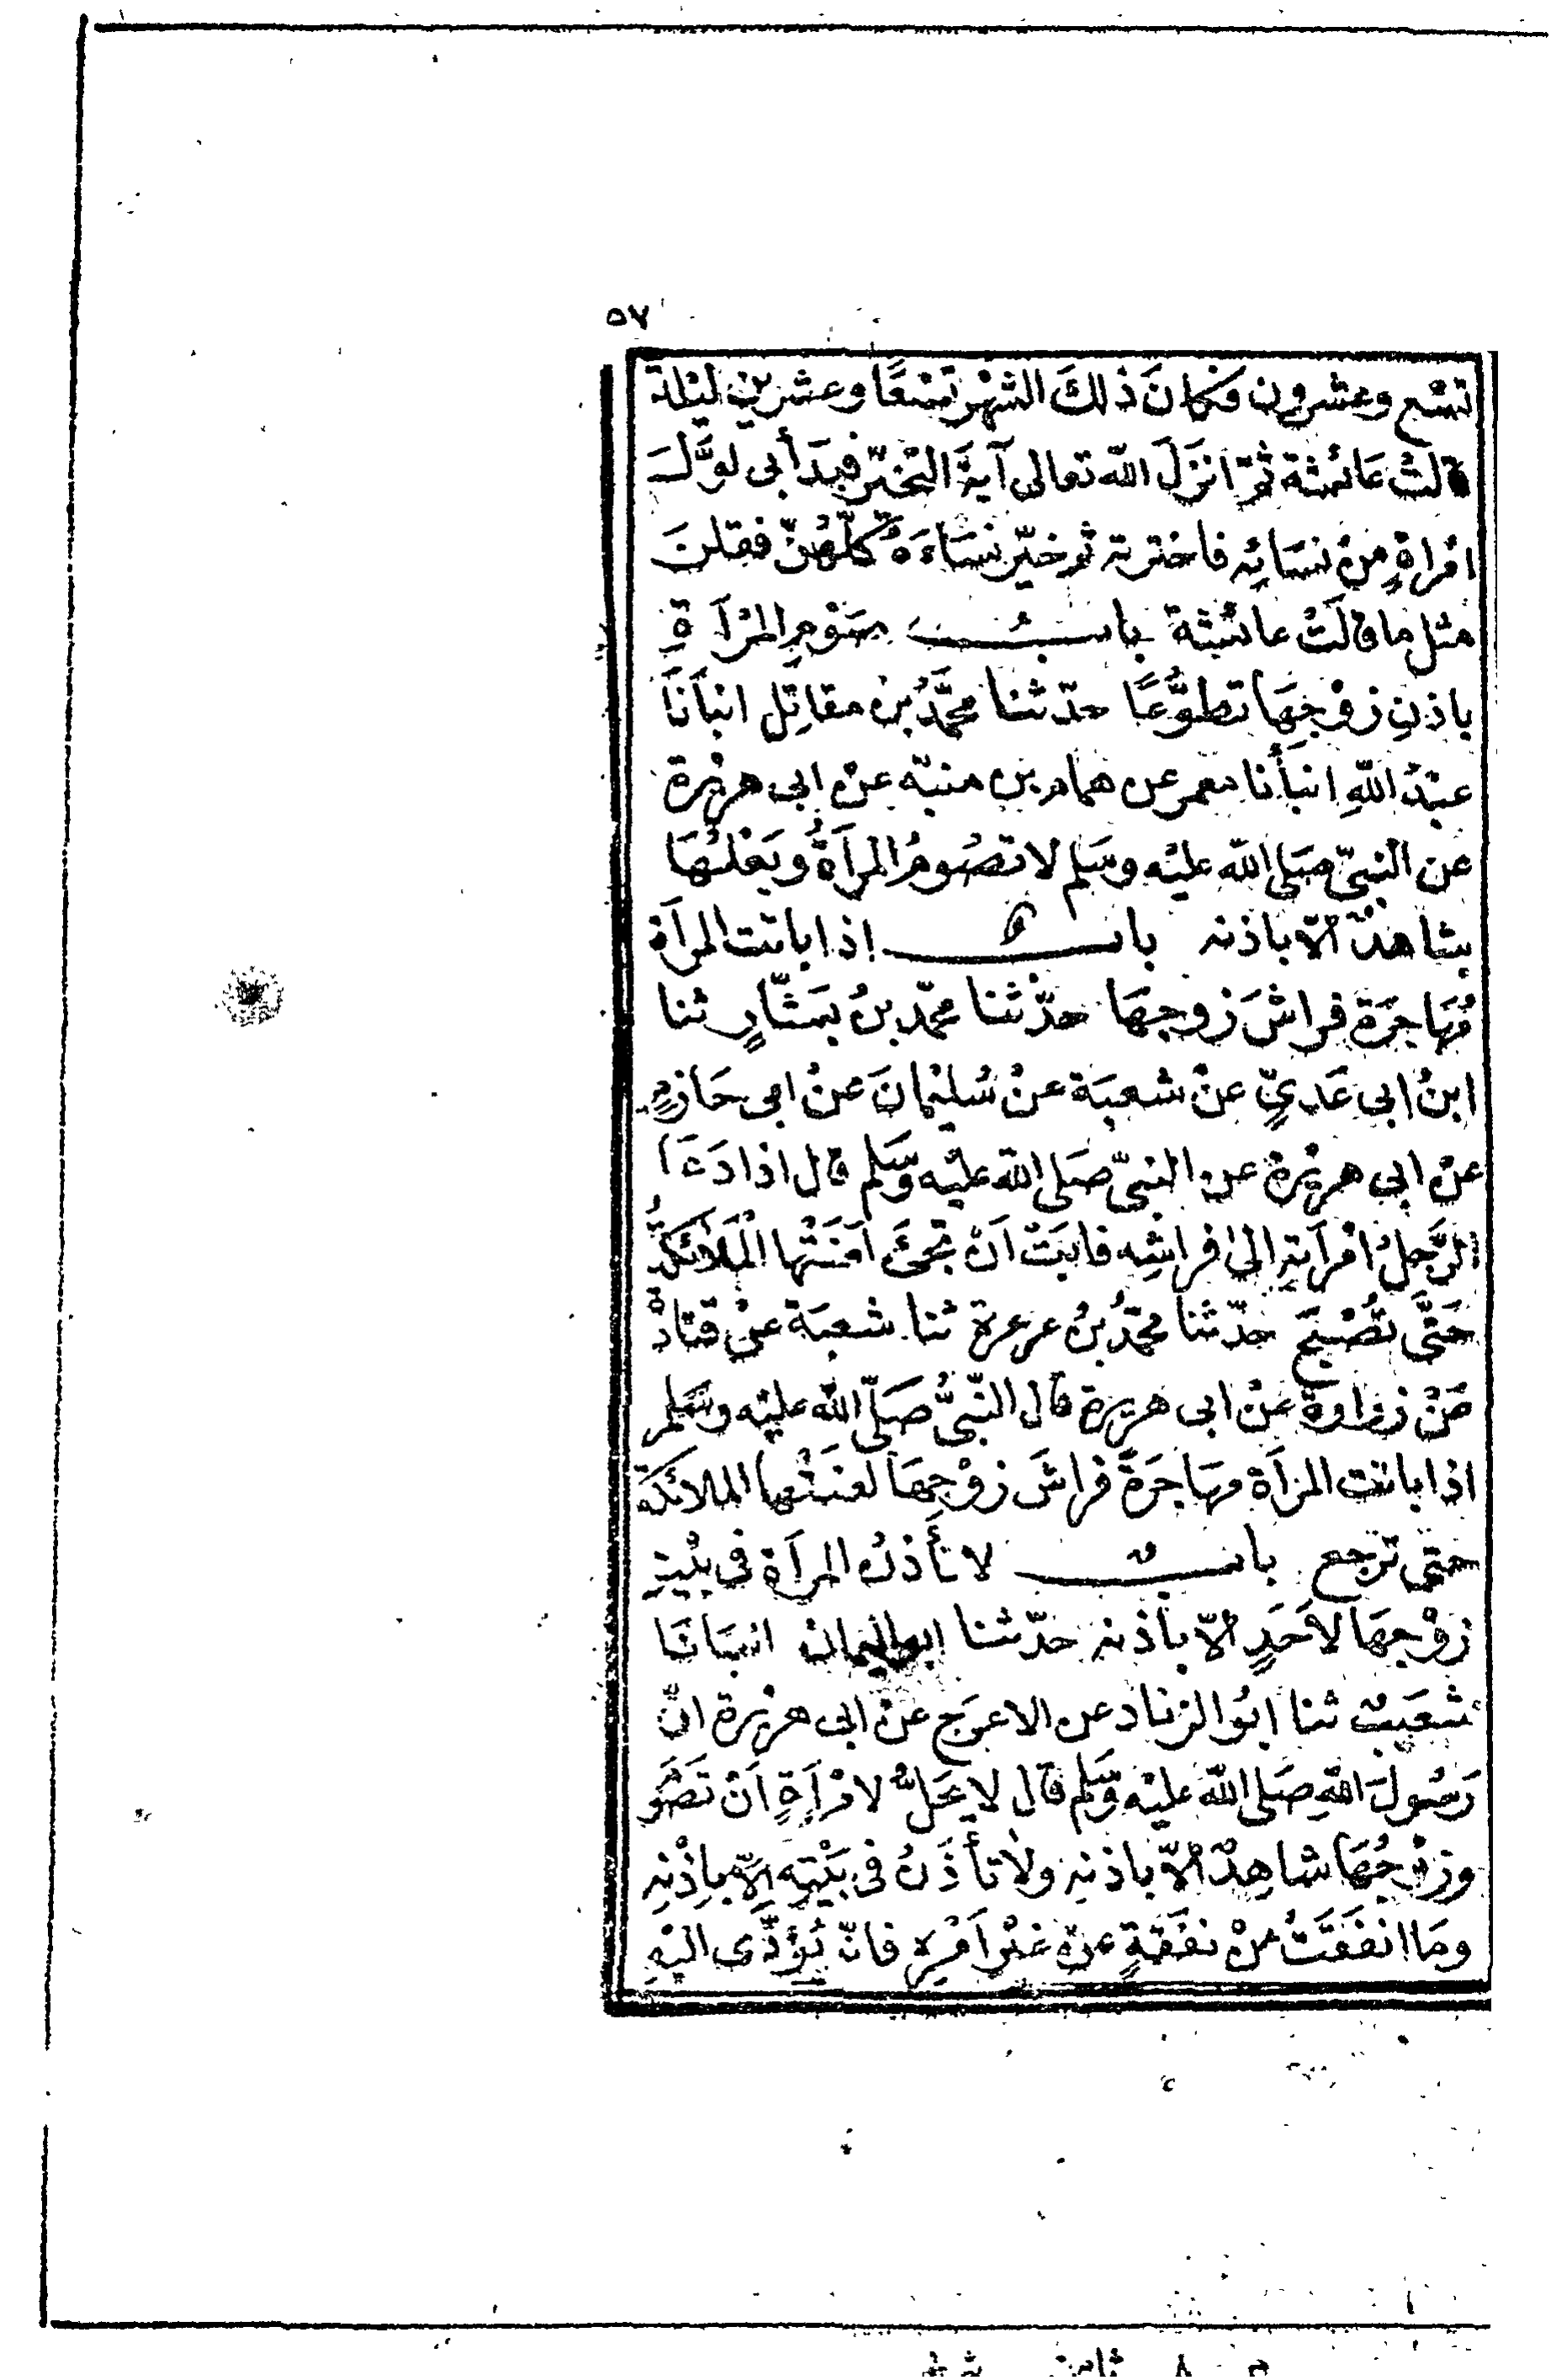 ٥٧
تسْع وعشرون فكانَ ذلكَ الشهْر تسْعًا وعشرين ليْلة
قالتْ عَائشة ثمّ انزَلَ الله تعالى آيَةَ التخيّر فبدَأ بى اوَّلَ
امْراةٍ منْ نسَائه فاخترته ثم خيّر نسَاءَهُ كلّهُنّ فقلنَ
مثل ما قالَتْ عائشة بابُ صَوْمِ المرْأَةِ
باذنِ زوْجهَا تطوُّعًا حدّثنا محمَّدُ بن مقاتِل انبَانَا
عبْدُ اللّهِ انبَأنا معمر عن همام بن منبّه عنْ ابى هريْرة
عن النبىّ صَلى الله عليْه وسَلم لا تصُومُ المرأَةُ وبَعْلهَا
شاهدٌ الّا باذنه باب اذا باتت المرأة
مُهَاجرَة فراشَ زوجهَا حدّثنا محمّد بنُ بَشّارٍ ثنا
ابنُ ابى عَدىٍّ عنْ شعبَة عنْ سُليْمانَ عنْ ابى حَازمٍ
عنْ ابى هريْرة عن النبىّ صَلى الله عليْه وسَلم قال اذا دَعَا
الرَّجلُ امْرأتهِ الىٰ فراشِه فابَتْ اَنْ تجئَ لعَنَتْها الْمَلَائكةُ
حَتَّى تُصْبحَ حدّثنا محمّدُ بنُ عرعرة ثنا شعبَة عنْ قتَادةَ
عَنْ زرارةَ عنْ ابى هريرة قال النّبىُّ صَلّى الله عليْه وسَلم
اذا باتت المرْأَة مهَاجرَةً فراشَ زوْجهَا لعنَتْها الملائكَة
حتى ترجع بابٌ لا تَأْذنُ المرأة فى بيْتِ
زوْجهَا لاَحَدٍ الّا باذنه حدّثنا ابو اليمان انبَانَا
شعَيبٌ ثنا ابُو الزناد عن الاعرَج عنْ ابى هريْرة انّ
رَسُولَ اللهِ صَلى الله عليْه وسَلم قال لا يَحلُّ لامْرأَةٍ اَنْ تَصُو
وزوْجُهَا شاهِدٌ الّا باذنهِ ولا تأذَنُ فى بَيْتِه الّا باِذْنهِ
ومَا انفَقَتْ منْ نفَقةٍ عنْ غيْر اَمْرِه فانّه يُؤدَّى اليْهِ